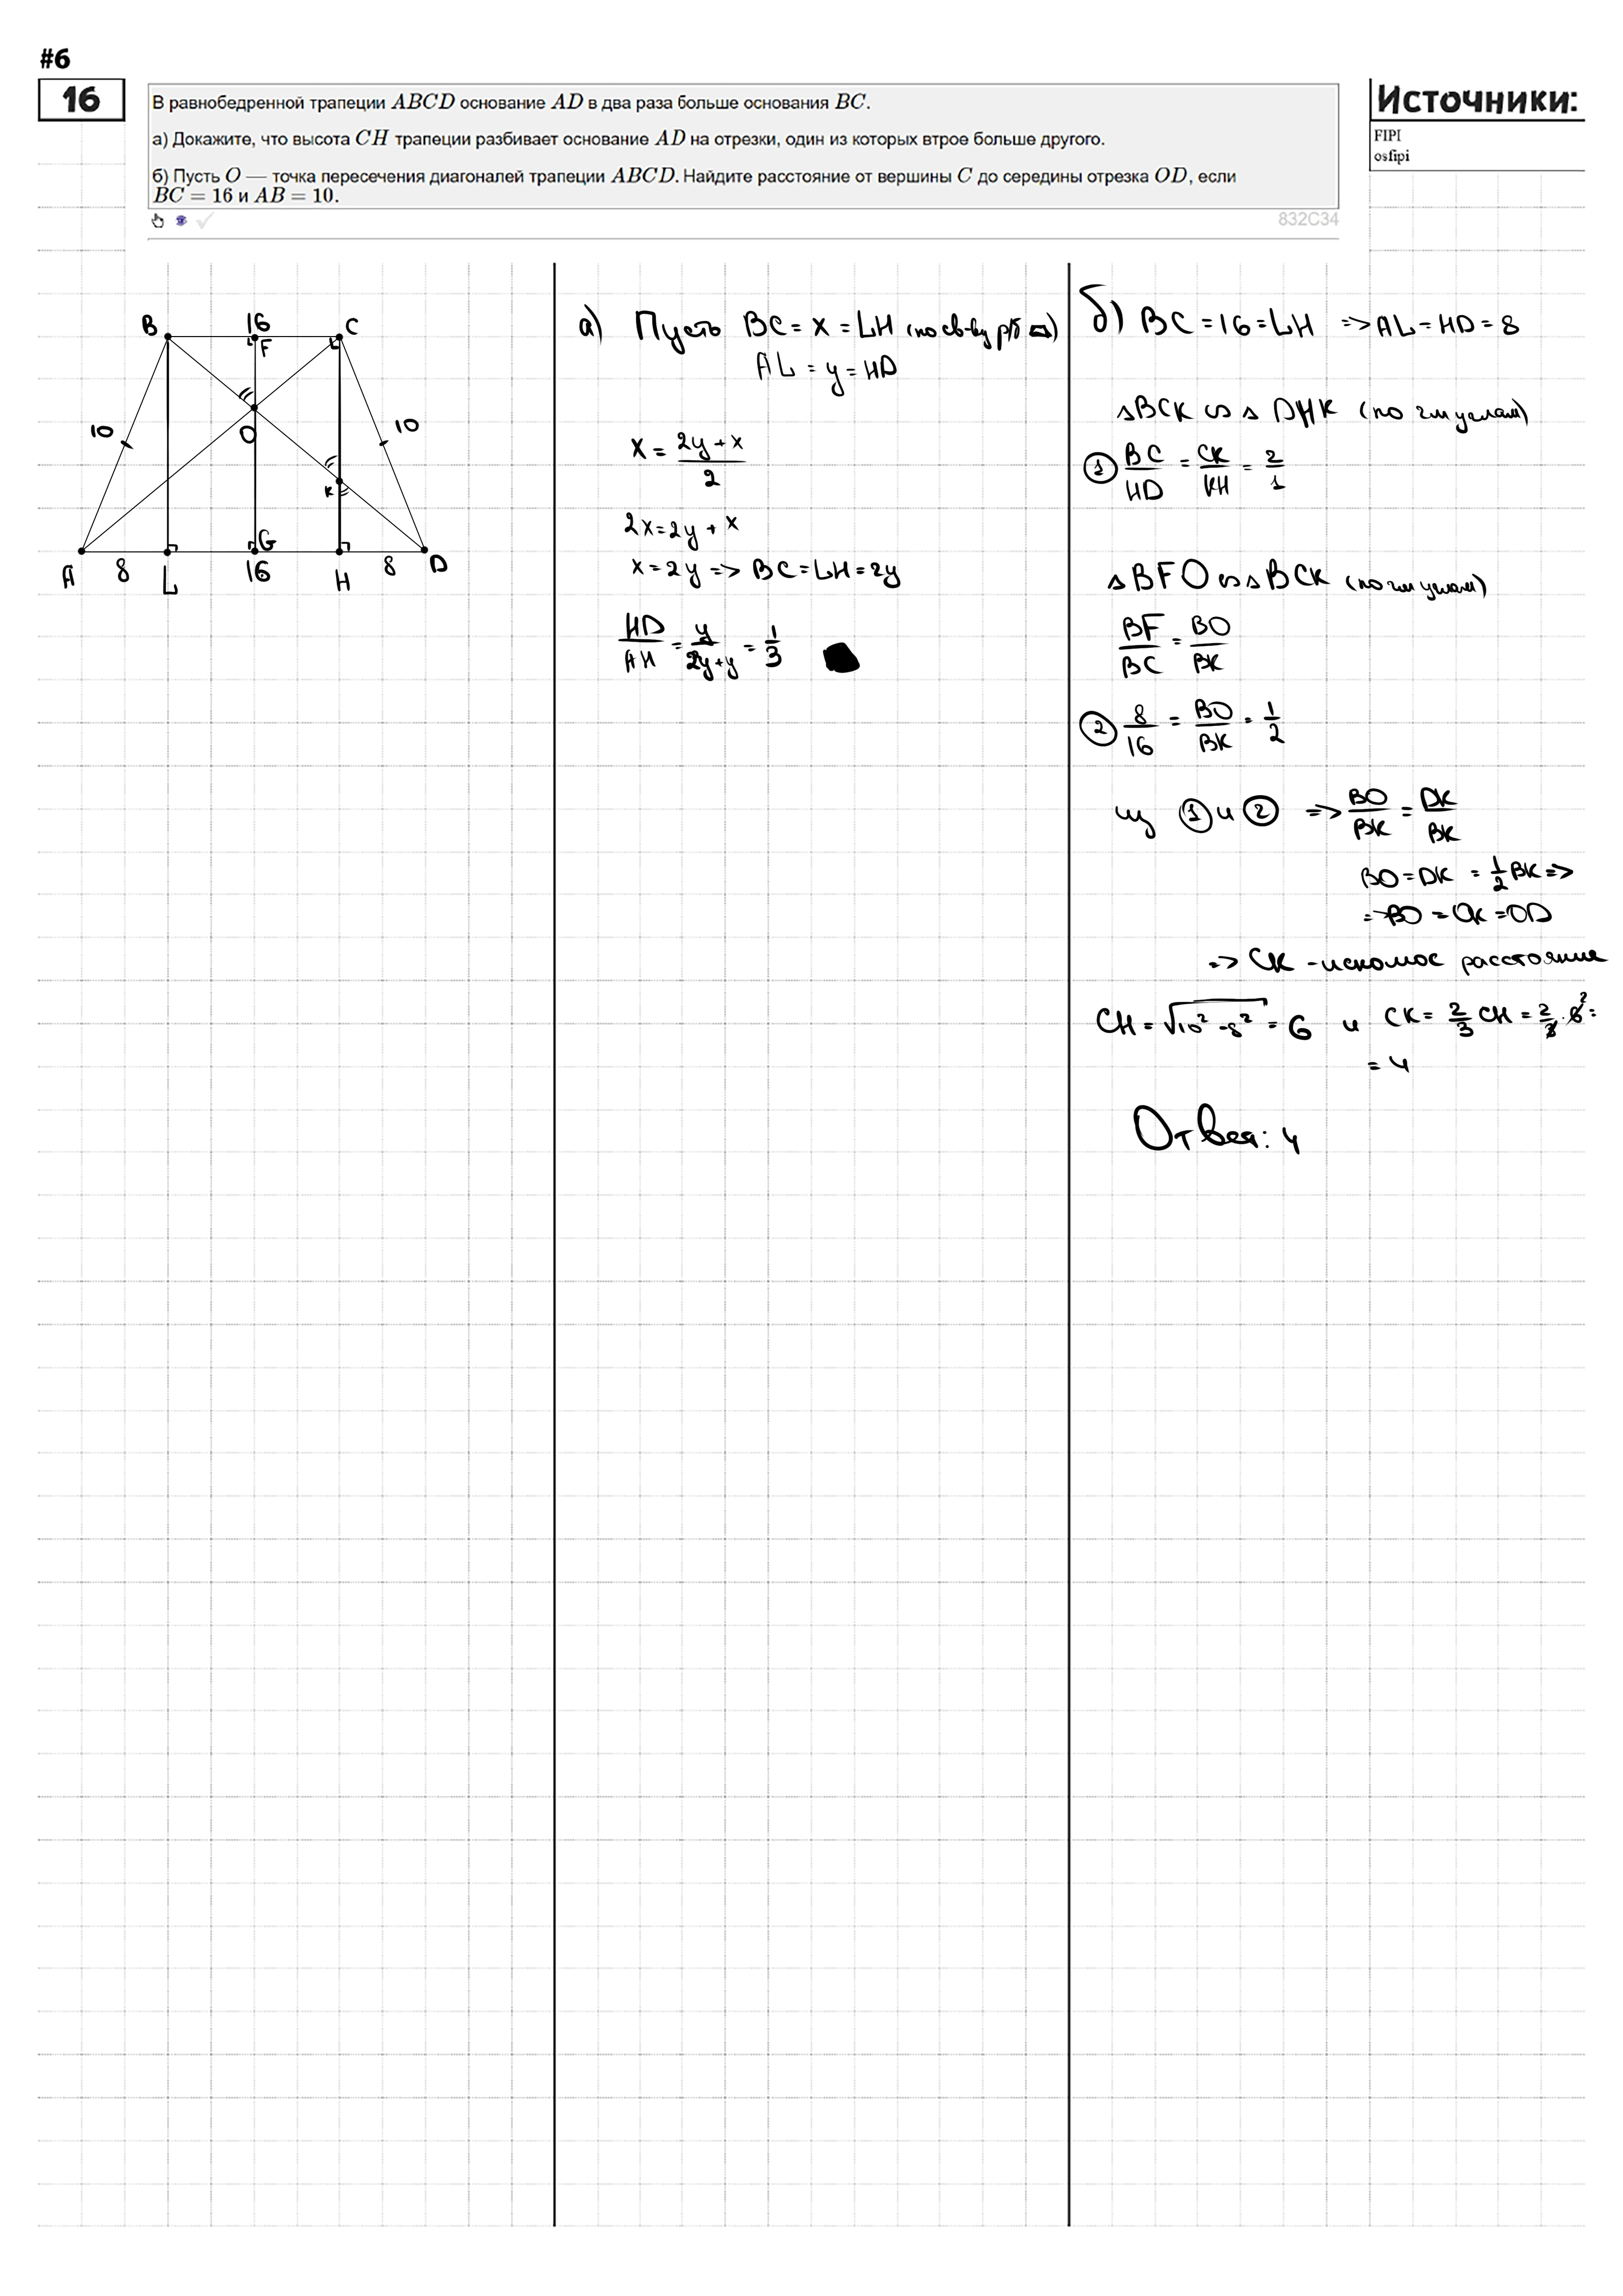 #6
16
В равнобедренной трапеции ABCD основание AD в два раза больше основания BC.
а) Докажите, что высота CH трапеции разбивает основание AD на отрезки, один из которых втрое больше другого.
б) Пусть O — точка пересечения диагоналей трапеции ABCD. Найдите расстояние от вершины C до середины отрезка OD, если
BC = 16 и AB = 10.
832C34
Источники:
FIPI
osfipi
B 16 C
F
10 O 10
K
G
A 8 L 16 H 8 D
а) Пусть BC = x = LH (по св-ву р/б
AL = y = HD
x = \frac{2y + x}{2}
2x = 2y + x
x = 2y => BC = LH = 2y
\frac{HD}{AH} = \frac{y}{2y+y} = \frac{1}{3}
б) BC = 16 = LH => AL = HD = 8
△BCK ∽ △DHK (по 2м углам)
① \frac{BC}{HD} = \frac{CK}{KH} = \frac{2}{1}
△BFO ∽ △BCK (по 2м углам)
\frac{BF}{BC} = \frac{BO}{BK}
② \frac{8}{16} = \frac{BO}{BK} = \frac{1}{2}
из ① и ② => \frac{BO}{BK} = \frac{DK}{BK}
BO = DK = \frac{1}{2} BK =>
=> BO = OK = OD
=> CK - искомое расстояние
CH = \sqrt{10² - 8²} = 6 и CK = \frac{2}{3} CH = \frac{2}{3} · 6² =
= 4
Ответ: 4